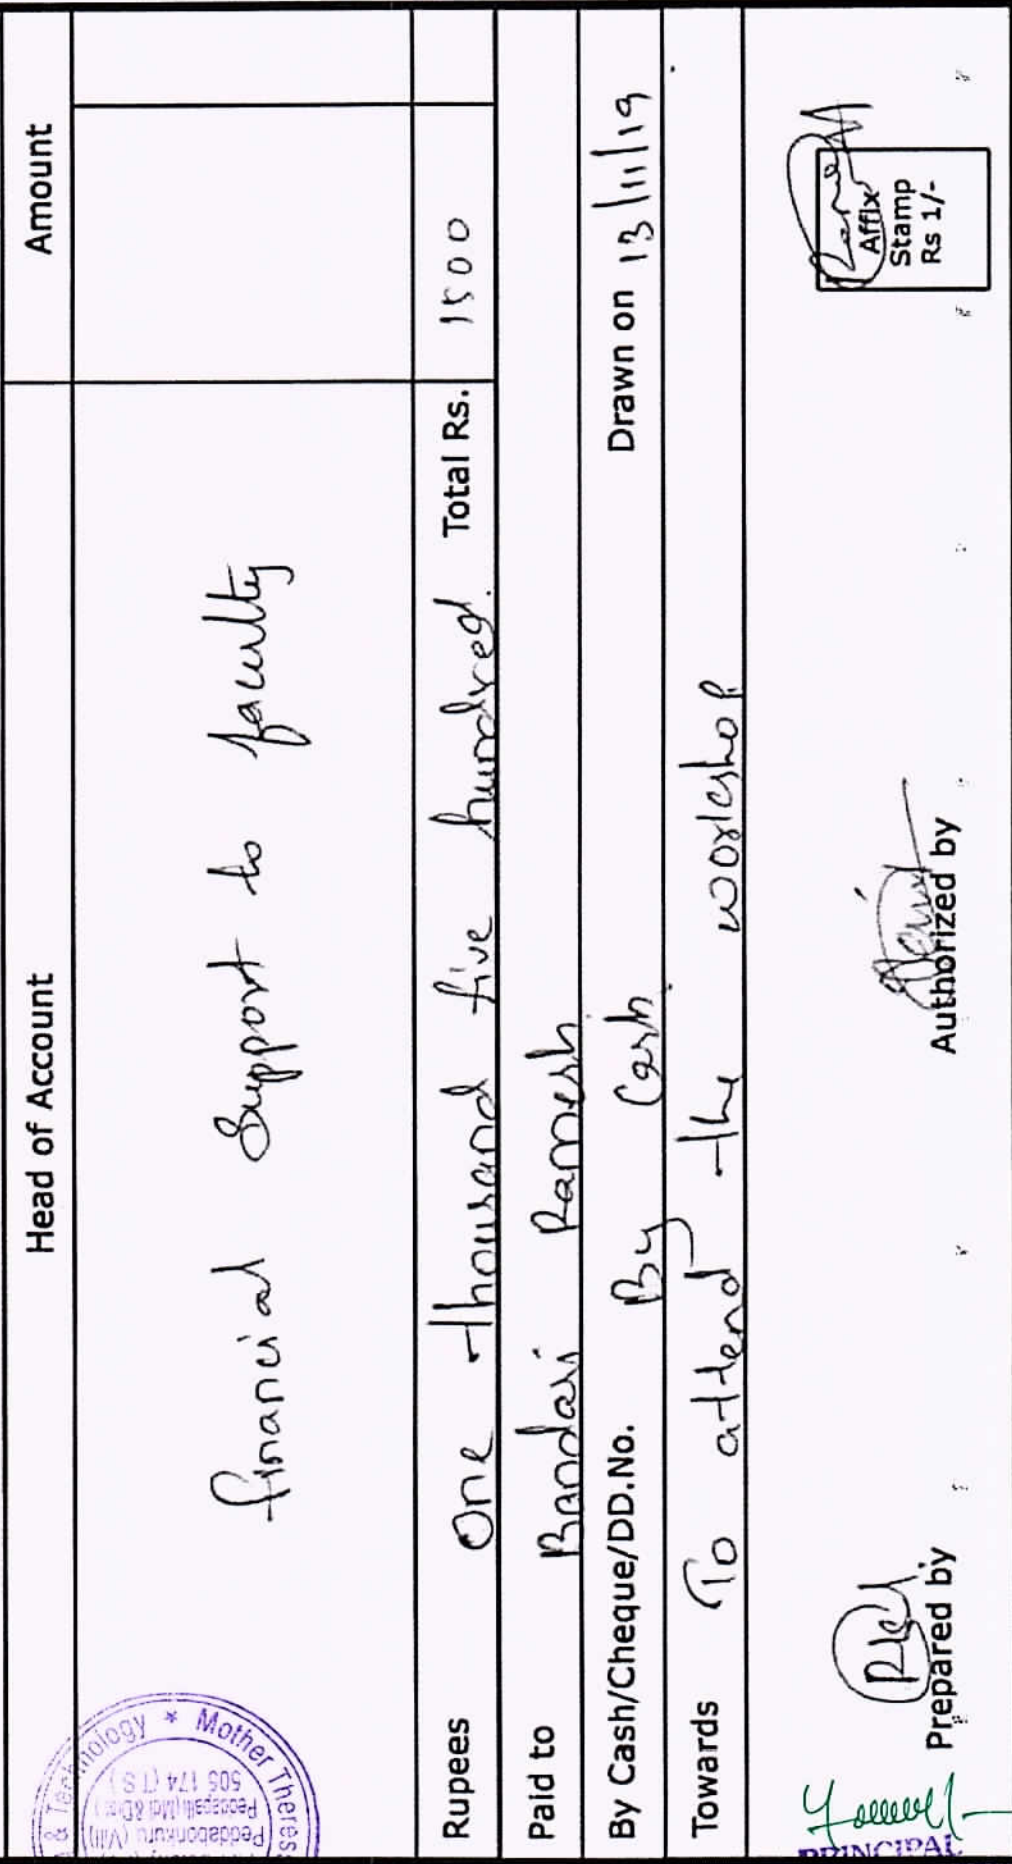 Head of Account Amount
financial Support to faculty
Rupees One thousand five hundred. Total Rs. 1500
Paid to Bandari Ramesh
By Cash/Cheque/DD.No. By Cash. Drawn on 13/11/19
Towards To attend the workshop
Affix
Stamp
Rs 1/-
Prepared by Authorized by
PRINCIPAL
& Technology * Mother Theres
Peddabonkuru (Vill)
Peddapalli (Mdl & Dist)
505 174 (T.S.)